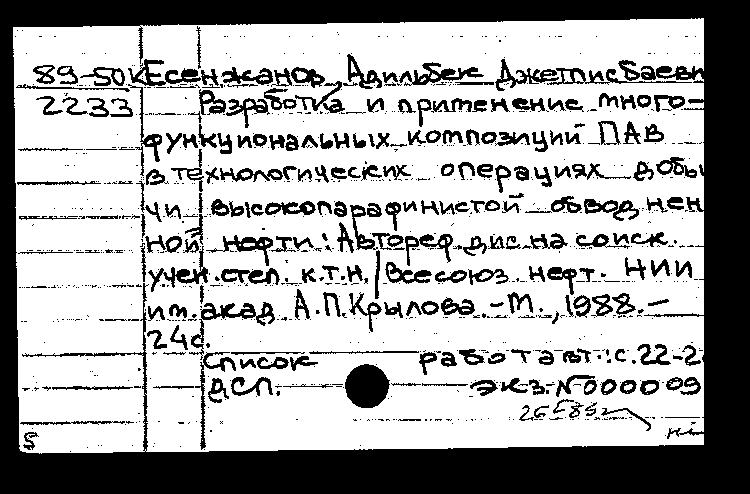 89-50к Есенжанов, Адильбек Джетписбаеви
2233 Разработка и применение много-
функциональных композиций ПАВ
в технологических операциях добы
чи высокопарафинистой обводнен
ной нефти: Автореф. дис. на соиск.
учен. степ. к.т.н. / Всесоюз. нефт. НИИ
им. акад. А.П. Крылова. - М., 1988. -
24с.
Список работ авт.: с. 22-2
ДСП. Экз. N 000009